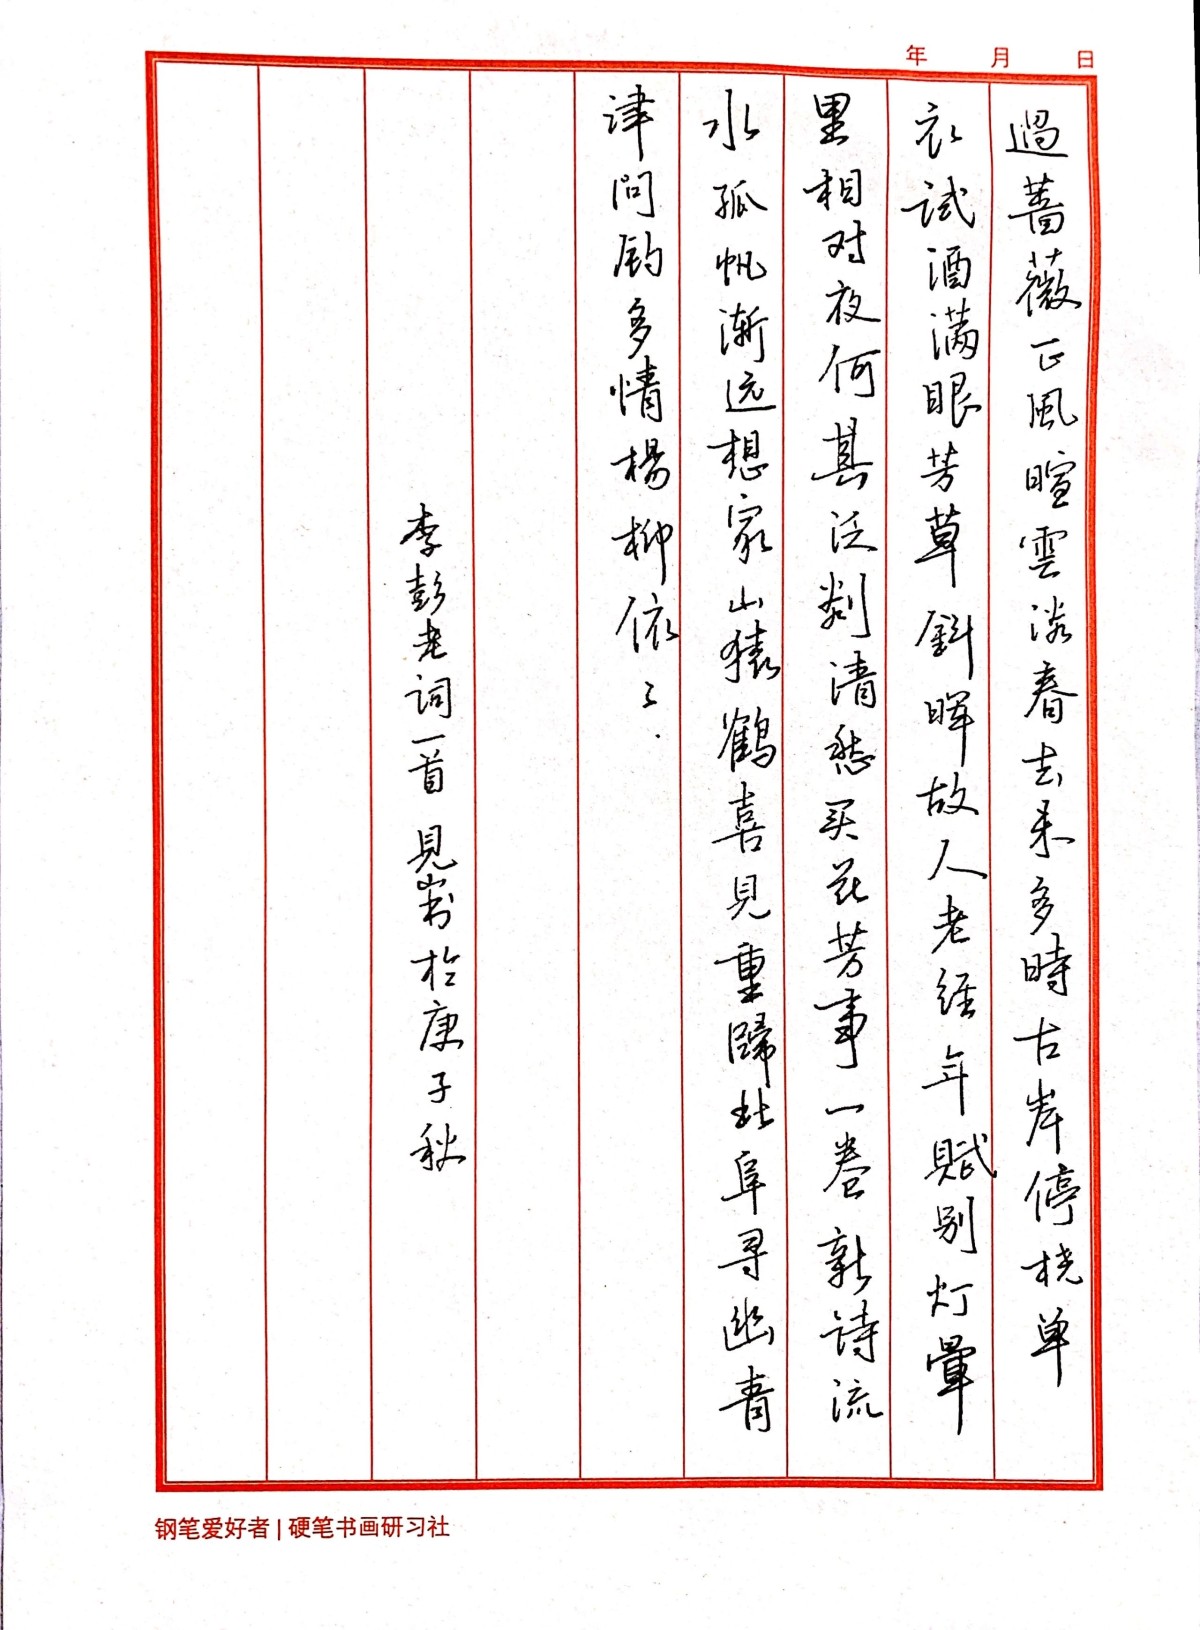 年 月 日
過薔薇正風暄雲淡春去未多時古岸停桡单
衣试酒满眼芳草斜暉故人老经年赋别灯暈
里相对夜何其泛剡清愁买花芳事一卷新诗流
水孤帆渐远想家山猿鶴喜見重歸北阜寻幽青
津问钓多情楊柳依〻
李彭老词一首 見嵜書於庚子秋
钢笔爱好者 | 硬笔书画研习社